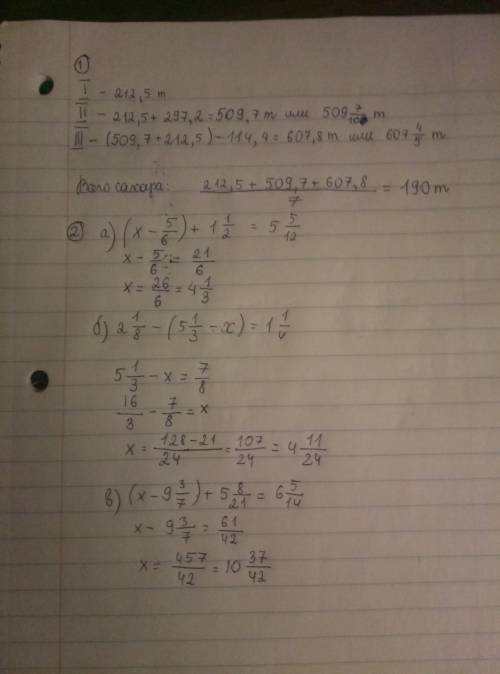 ①
I - 212,5 т
II - 212,5 + 297,2 = 509,7 т или 509 7/10 т
III - (509,7 + 212,5) - 114,4 = 607,8 т или 607 4/5 т
Всего сахара: (212,5 + 509,7 + 607,8)/7 = 190 т
② а) (x - 5/6) + 1 1/2 = 5 5/12
x - 5/6 = 21/6
x = 26/6 = 4 1/3
б) 2 1/8 - (5 1/3 - x) = 1 1/4
5 1/3 - x = 7/8
16/3 - 7/8 = x
x = (128 - 21)/24 = 107/24 = 4 11/24
в) (x - 9 3/7) + 5 8/21 = 6 5/14
x - 9 3/7 = 61/42
x = 457/42 = 10 37/42